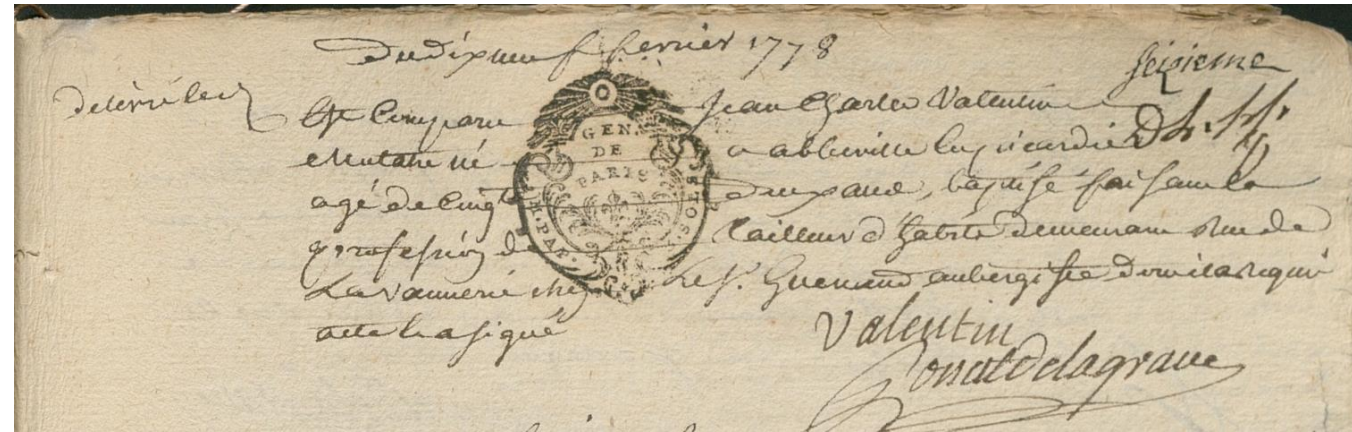 Du dix neuf fevrier 1778
Seizieme
delivré le
Est Comparu Jean Charles Valentin
Mulatre né a abbeville en picardie
agé de vingt deux ans, baptisé faisant la
profession de tailleur d'habits demeurant Rue de
La vannerie chez Le Sr. Guenaud aubergiste dont il a requis
acte et a signé
GEN.
DE
PARIS
Valentin
delagrave